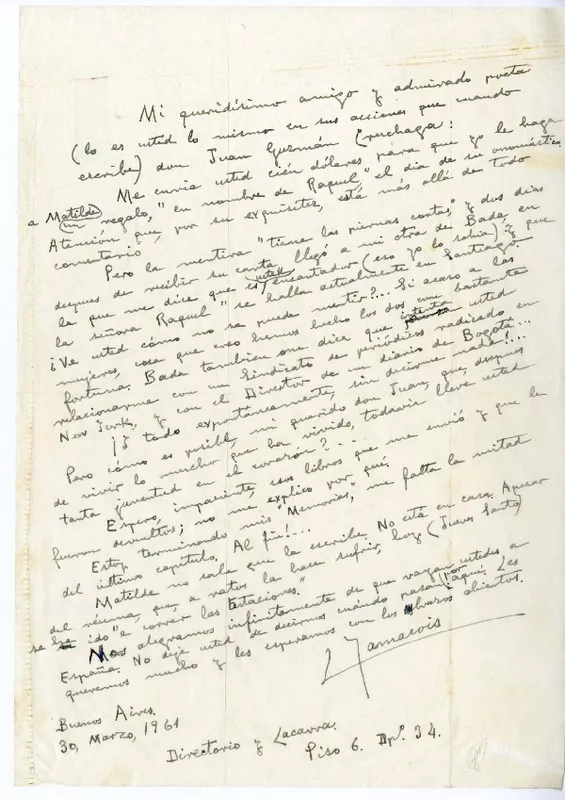 Mi queridísimo amigo y admirado poeta
(lo es usted lo mismo en sus acciones que cuando
escribe) don Juan Guzmán Cruchaga:
Me envía usted cien dólares para que yo le haga
a Matilde un regalo, "en nombre de Raquel," el día de su onomástico.
Atención que, por su exquisitez, está más allá de todo
comentario.
Pero la mentira "tiene las piernas cortas" y dos días
despues de recibir su carta llegó a mi otra de Bada, en
la que me dice que es usted encantador (eso yo lo sabía) y que
la señora Raquel "se halla actualmente en Santiago
¿Ve usted cómo no se puede mentir?... Si acaso a las
mujeres, cosa que creo hemos hecho los dos con bastante
fortuna. Bada tambien me dice que intenta usted
relacionarme con un Sindicato de periódicos radicado en
New York, y con el Director de un diario de Bogotá...
¡Y todo expontáneamente, sin decirme nada!...
Pero cómo es posible, mi querido don Juan, que, despues
de vivir lo mucho que ha vivido, todavía lleve usted
tanta juventud en el corazón?...
Espero, impaciente, esos libros que me envió y que le
fueron devueltos; no me explico por qué.
Estoy terminando mis "Memorias," me falta la mitad
del último capítulo. Al fin!...
Matilde no sabe que la escribe. No está en casa. Apesar
del réuma, que, a ratos la hace sufrir, hoy (Jueves Santo)
se ha ido "a correr las Estaciones."
Nos alegramos infinitamente de que vayan ustedes a
España. No deje usted de decirnos cuándo pasan por aquí. Les
queremos mucho y les esperamos con los brazos abiertos.
Buenos Aires.
30, Marzo, 1961
Directorio y Lacarra.
Piso 6. Dpº. 34.